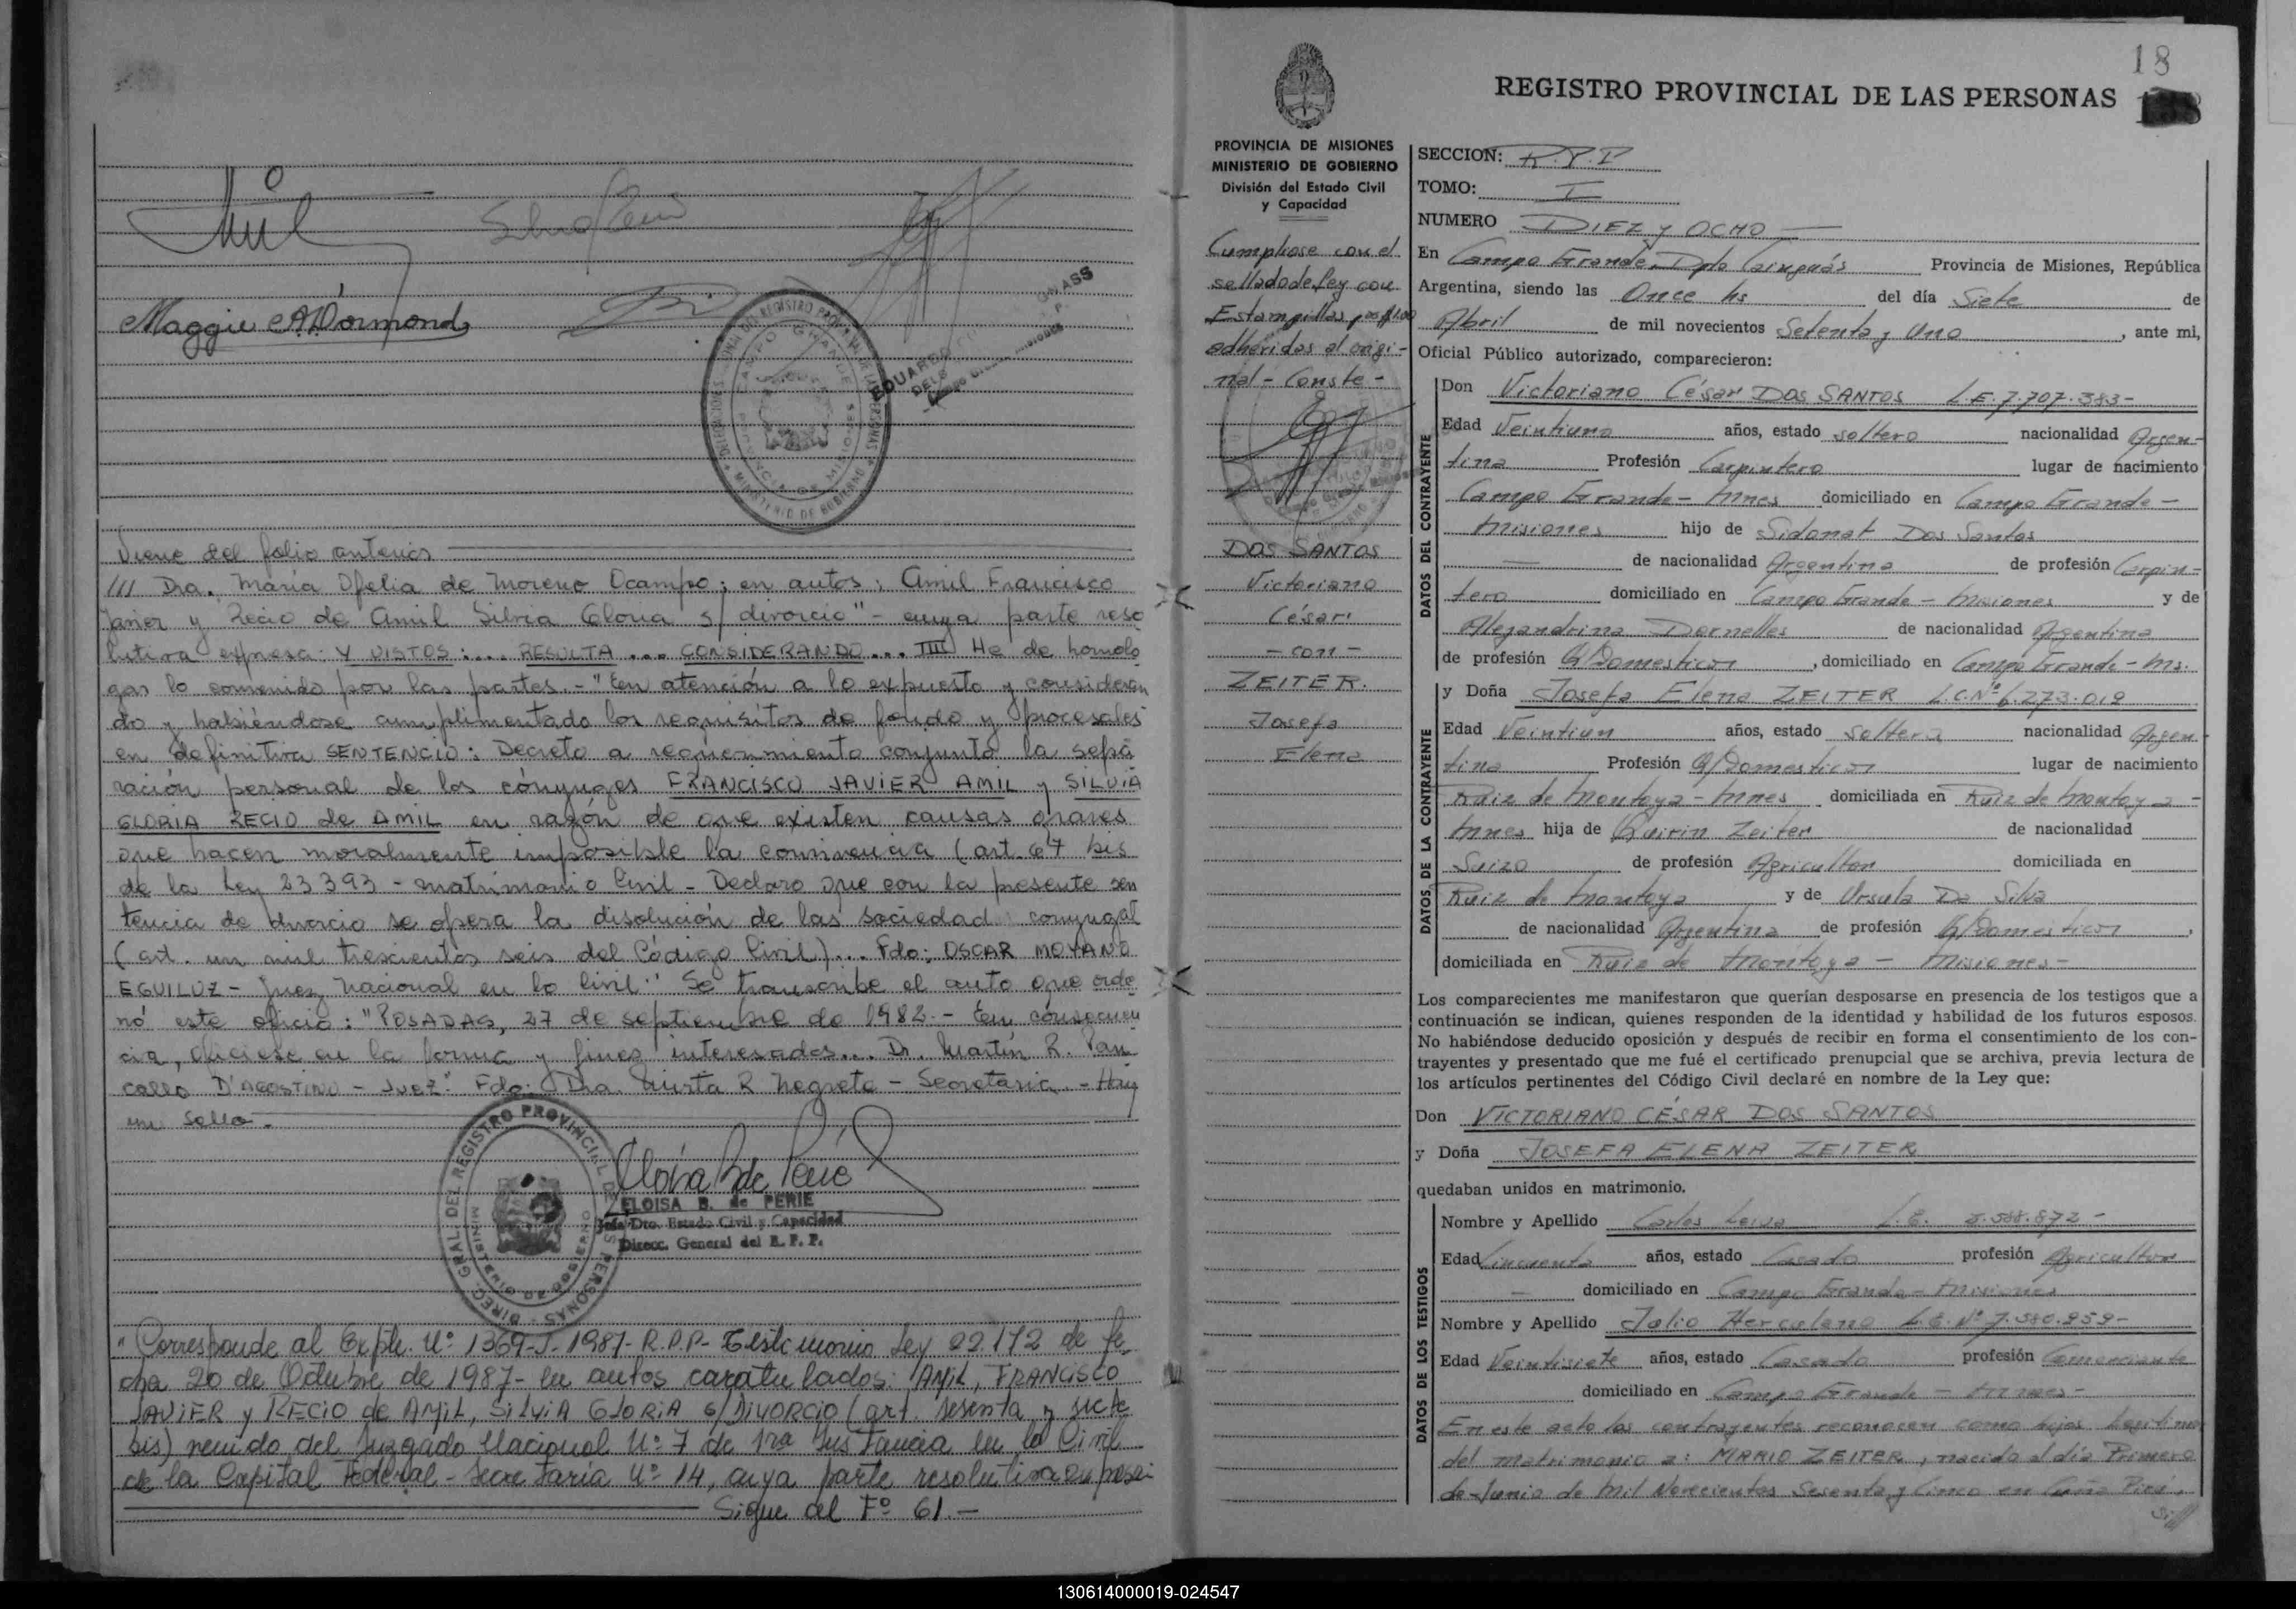 Maggie A. Dormond
DIREC. GRAL. DEL REGISTRO PROVINCIAL DE LAS PERSONAS
CAMPO GRANDE
PROVINCIA DE MISIONES
MINISTERIO DE GOBIERNO
EDUARDO
Viene del folio anterior
/// Dra. María Ofelia de Moreno Ocampo; en autos: Amil Francisco
Javier y Recio de Amil Silvia Gloria s/ divorcio" - cuya parte reso
lutiva expresa: Y VISTOS:... RESULTA... CONSIDERANDO... III He de homolo
gar lo convenido por las partes. - "En atención a lo expuesto y consideran
do y habiéndose cumplimentado los requisitos de fondo y procesales
en definitiva SENTENCIO: Decreto a requerimiento conjunto la sepa
ración personal de los cónyuges FRANCISCO JAVIER AMIL y SILVIA
GLORIA RECIO de AMIL en razón de que existen causas graves
que hacen moralmente imposible la convivencia (art. 67 bis
de la Ley 23393 - matrimonio Civil - Declaro que con la presente sen
tencia de divorcio se opera la disolución de las sociedad conyugal
(art. un mil trescientos seis del Código Civil)... Fdo: OSCAR MOYANO
EGUILUZ - Juez Nacional en lo Civil." Se transcribe el auto que orde
nó este oficio: "POSADAS, 27 de septiembre de 1982. - En consecuen
cia, ofíciese en la forma y fines interesados... Dr. Martín R.
D'AGOSTINO - JUEZ". Fdo: Dra. Mirta R. Negrete - Secretaria. - Hay
un sello.
DIREC. GRAL. DEL REGISTRO PROVINCIAL DE LAS PERSONAS
MINISTERIO DE GOBIERNO
ELOISA B. de PERIE
Jefa Dto. Estado Civil y Capacidad
Direcc. General del R. P. P.
"Corresponde al Expte. Nº 1369-J-1987- R.P.P- Testimonio Ley 22.172 de fe
cha 20 de Octubre de 1987- en autos caratulados: AMIL, FRANCISCO
JAVIER y RECIO de AMIL, SILVIA GLORIA s/ DIVORCIO (art. sesenta y siete
bis) venido del Juzgado Nacional Nº 7 de 1ra Instancia en lo Civil
de la Capital Federal - Secretaría Nº 14, cuya parte resolutiva
Sigue al Fº 61.-
18
REGISTRO PROVINCIAL DE LAS PERSONAS
PROVINCIA DE MISIONES
MINISTERIO DE GOBIERNO
División del Estado Civil
y Capacidad
Cumplase con el
sellado de Ley con
Estampillas por $1.00
adheridas al origi-
nal - Conste -
DOS SANTOS
Victoriano
César
- con -
ZEITER.
Josefa
Elena
SECCION: R.P.P
TOMO: I
NUMERO DIEZ y OCHO
En Campo Grande, Dpto Cainguás Provincia de Misiones, República
Argentina, siendo las Once hs del día Siete de
Abril de mil novecientos Setenta y Uno, ante mi,
Oficial Público autorizado, comparecieron:
DATOS DEL CONTRAYENTE
Don Victoriano César DOS SANTOS L.E. 7.707.383-
Edad Veintiuno años, estado soltero nacionalidad Argen-
tina Profesión Carpintero lugar de nacimiento
Campo Grande - Mnes domiciliado en Campo Grande -
Misiones hijo de Sidonat Dos Santos
de nacionalidad Argentina de profesión Carpin-
tero domiciliado en Campo Grande - Misiones y de
Alejandrina Dornelles de nacionalidad Argentina
de profesión Q/Domesticos, domiciliado en Campo Grande - Ms.
DATOS DE LA CONTRAYENTE
y Doña Josefa Elena ZEITER L.C.Nº 6.273.012
Edad Veintiun años, estado Soltera nacionalidad Argen-
tina Profesión Q/Domesticos lugar de nacimiento
Ruiz de Montoya - Mnes domiciliada en Ruiz de Montoya -
Mnes hija de Quirin Zeiter de nacionalidad
Suizo de profesión Agricultor domiciliada en
Ruiz de Montoya y de Ursula Da Silva
de nacionalidad Argentina de profesión Q/Domesticos,
domiciliada en Ruiz de Montoya - Misiones -
Los comparecientes me manifestaron que querían desposarse en presencia de los testigos que a
continuación se indican, quienes responden de la identidad y habilidad de los futuros esposos.
No habiéndose deducido oposición y después de recibir en forma el consentimiento de los con-
trayentes y presentado que me fué el certificado prenupcial que se archiva, previa lectura de
los artículos pertinentes del Código Civil declaré en nombre de la Ley que:
Don VICTORIANO CÉSAR DOS SANTOS
y Doña JOSEFA ELENA ZEITER
quedaban unidos en matrimonio.
DATOS DE LOS TESTIGOS
Nombre y Apellido Carlos Leiva L.E. 2.588.872 -
Edad Cincuenta años, estado Casado profesión Agricultor
domiciliado en Campo Grande - Misiones
Nombre y Apellido Julio Herculano L.E. Nº 7.580.959-
Edad Veintisiete años, estado Casado profesión Comerciante
domiciliado en Campo Grande - Mnes -
En este acto los contrayentes reconocen como hijos legitimos
del matrimonio a: MARIO ZEITER, nacido el día Primero
de Junio de Mil Novecientos Sesenta y Cinco en Cuña Pirú,
130614000019-024547